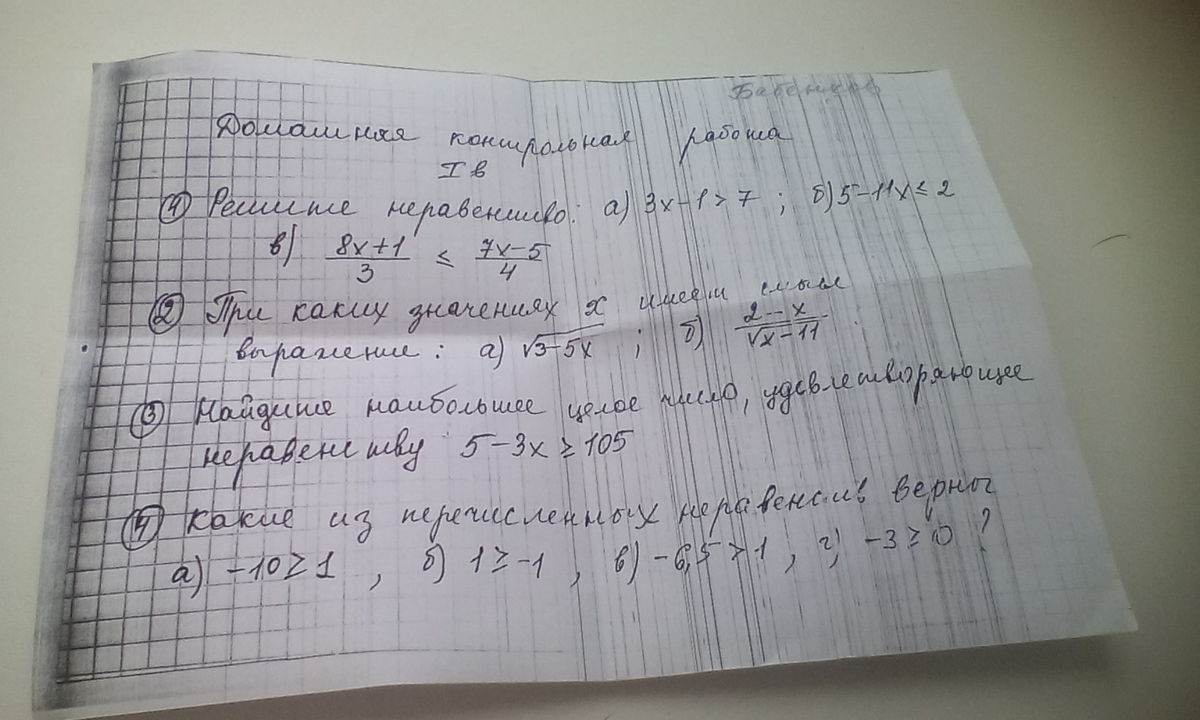 Бабенков
Домашняя контрольная работа
I в
① Решите неравенство: а) 3x-1>7 ; б) 5-11x≤2
в) (8x+1)/3 ≤ (7x-5)/4
② При каких значениях x имеет смысл
выражение: а) √(3-5x) ; б) (2-x)/√(x-11) .
③ Найдите наибольшее целое число, удовлетворяющее
неравенству 5-3x≥105
④ Какие из перечисленных неравенств верны
а) -10≥1 , б) 1≥-1 , в) -6,5>1 , г) -3≥0 ?